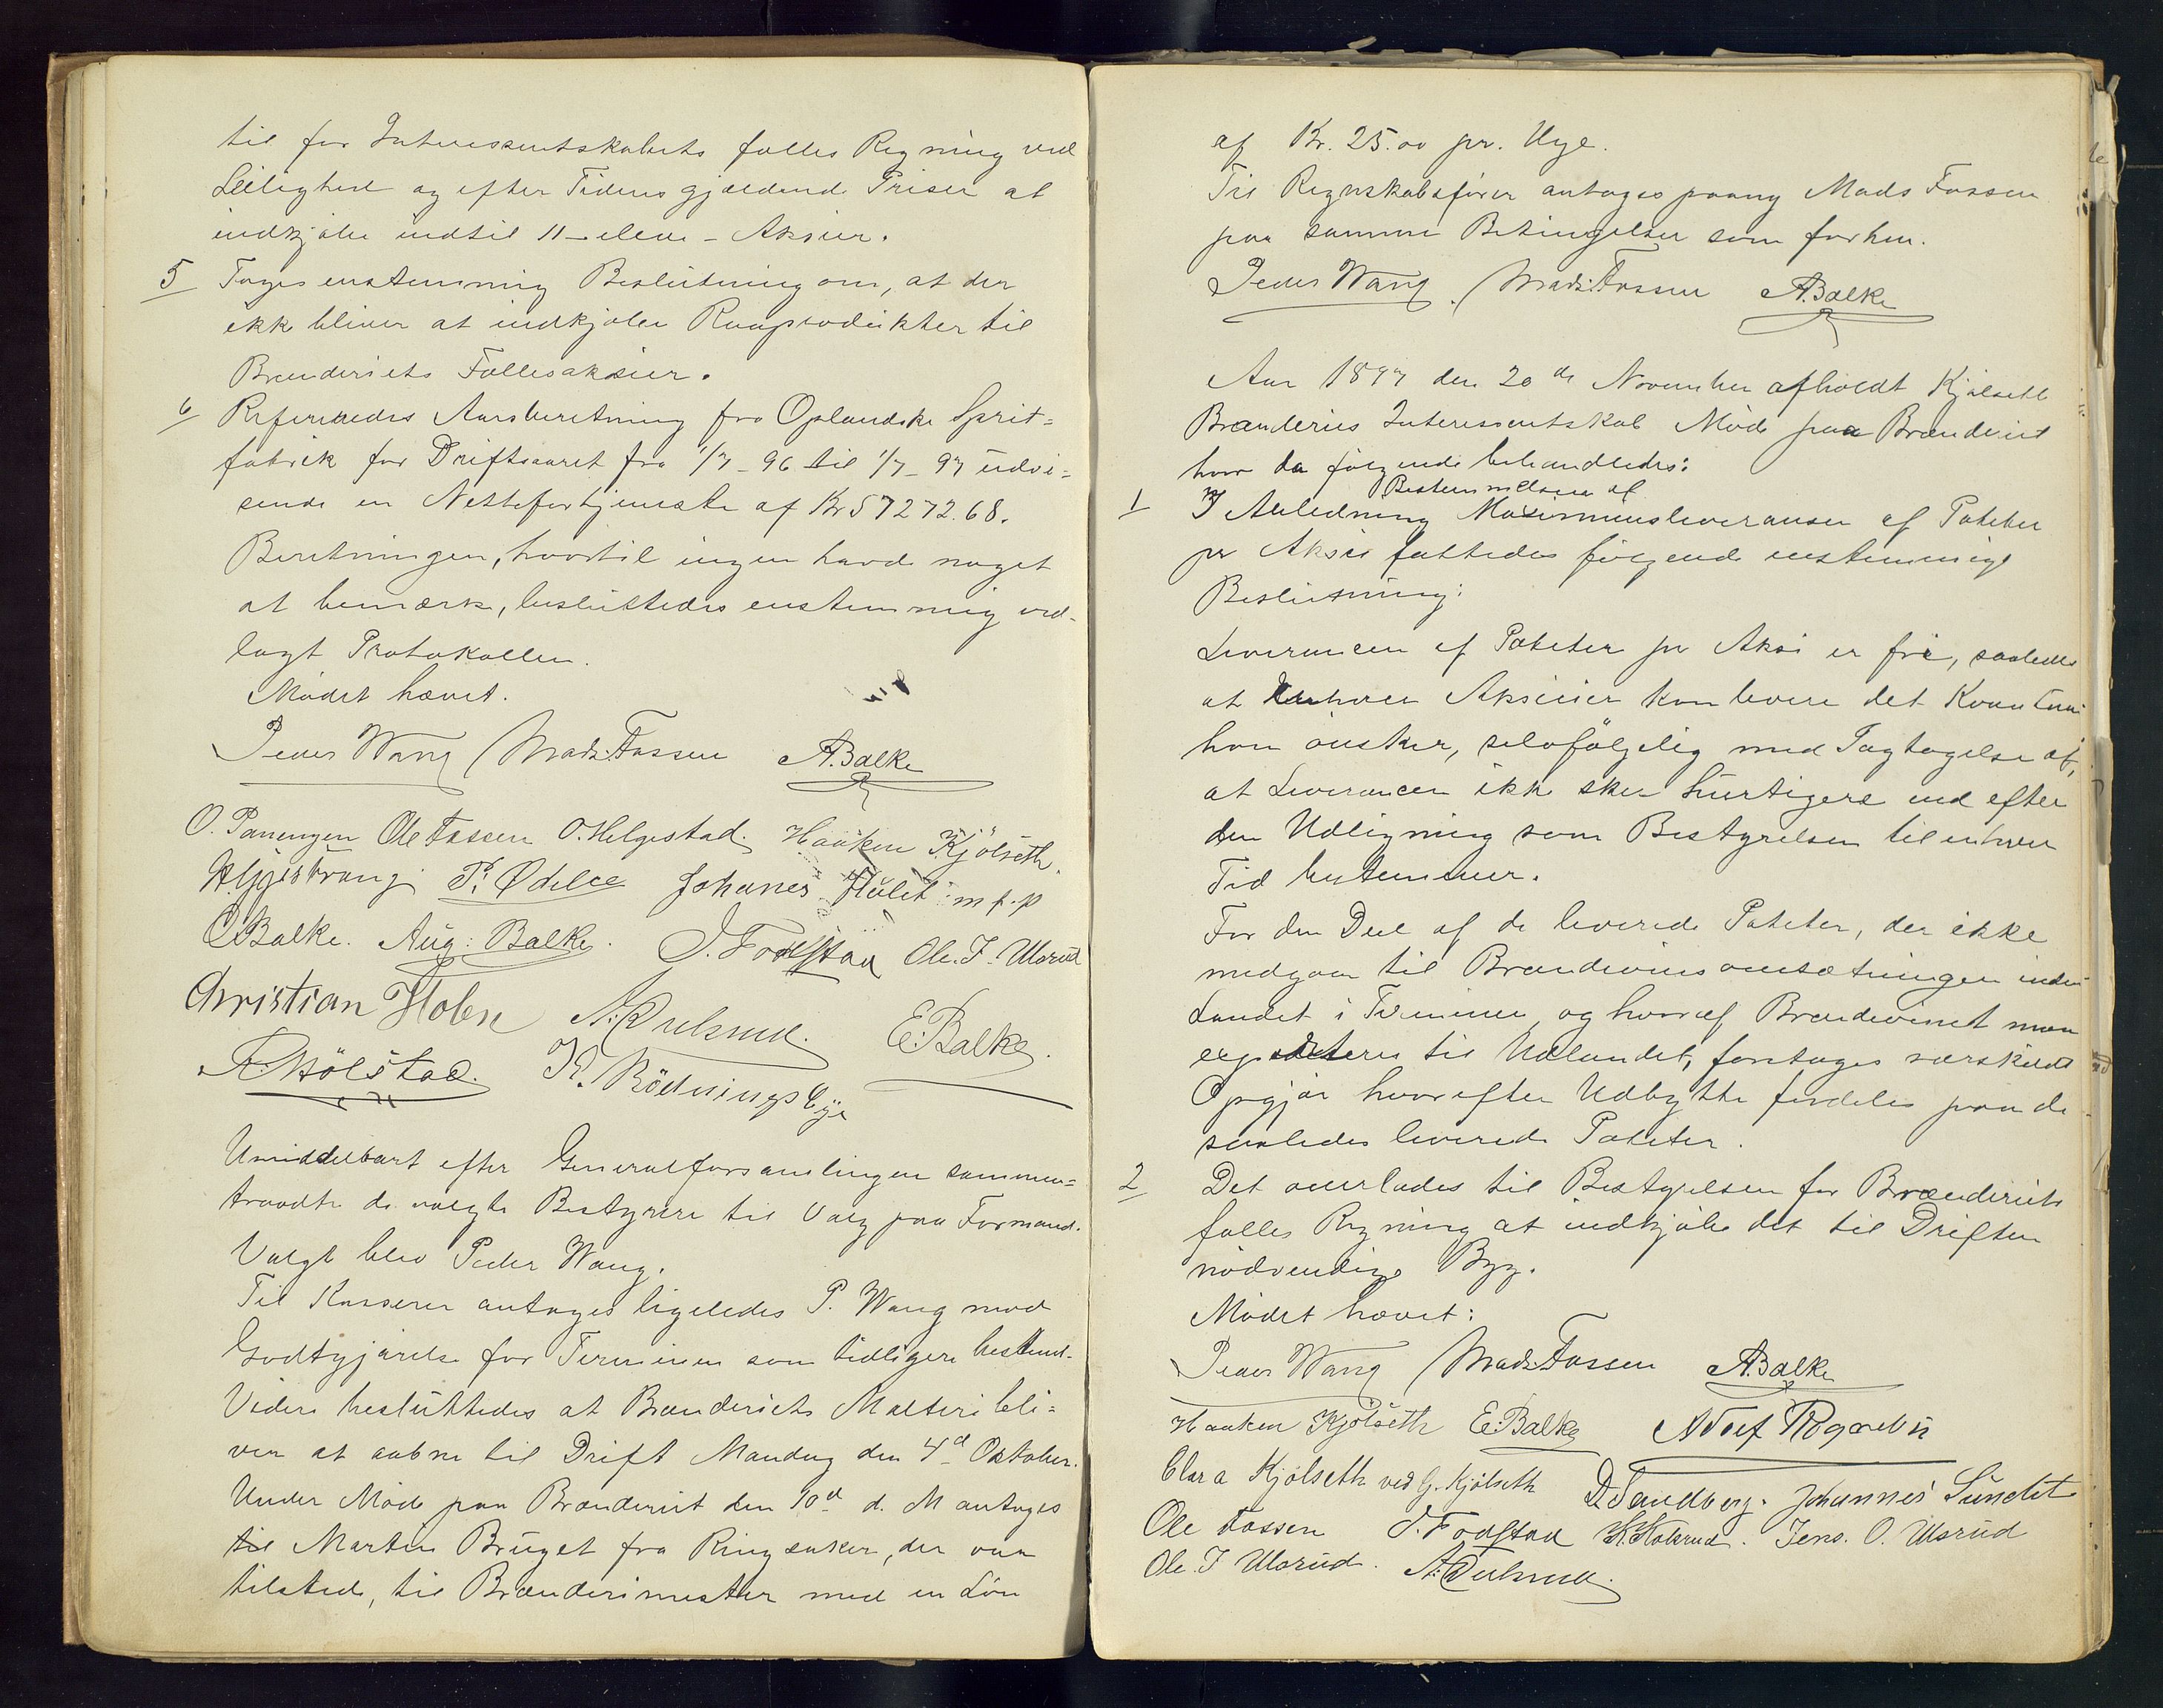 til for Interessentskabets fælles Regning ved
Leilighed og efter Tidens gjældende Priser at
indkjøbe indtil 11 - elleve - Aksier.
5 Toges enstemmig Beslutning om, at der
ikke bliver at indkjøbe Raaprodukter til
Brænderiets Fællesaksier.
6 Refereredes Aarsberetning fra Oplandske Sprit=
fabrik for Driftsaaret fra 1/7 - 96 til 1/7 - 97 udvi=
sende en Nettofortjeneste af Kr 57272.68.
Beretningen, hvortil ingen havde noget
at bemærke, besluttedes enstemmig ved-
lagt Protokollen.
Mødet hævet.
Peder Wang Mads Fossen A. Balke
O. Ole Fossen O. Helgestad. Haaken Kjölseth.
P. Ødelee Johanes m.f.p
O Balke. Aug: Balke. J. Fodstad Ole. J. Ulsrud
Christian E. Balke.
A. Hölstad. K. Rödningsbye
Umiddelbart efter Generalforsamlingen sammen=
traadte de valgte Bestyrere til Valg paa Formand.
Valgt blev Peder Wang.
Til Kasserer antoges ligeledes P. Wang mod
Godtgjørelse for Terminen som tidligere bestemt.
Videre besluttedes at Brænderiets Malteri bli=
ver at aabne til Drift Mandag den 4d Oktober.
Under Møde paa Brænderiet den 10d d. M antoges
til Martin Bruget fra Ringsaker, der var
tilstede, til Brænderimester med en Løn
af Kr. 25.00 pr. Uge.
Til Regnskabsfører antoges paany Mads Fossen
paa samme Betingelser som forhen.
Peder Wang. Mads Fossen A. Balke
Aar 1897 den 20de November afholdt Kjølseth
Brænderies Interessentskab Møde paa Brænderiet
hvor da følgende behandledes:
Bestemmelsen af
1 I Anledning Maximumsleverancen af Poteter
pr Aksie fattedes følgende enstemmige
Beslutning:
Leverancen af Poteter pr Aksie er fri, saaledes
at enhver Aksieier kan levere det Kvantum
han ønsker, selvfølgelig med Iagtagelse af,
at Leverancen ikke sker hurtigere end efter
den Udligning som Bestyrelsen til enhver
Tid bestemmer.
For den Deel af de leverede Poteter, der ikke
medgaar til Brændevinsomsætningen inden
Landet i Terminen og hvoraf Brændevinet maa
exporteres til Udlandet, foretages særskildt
Opgjør hvorefter Udbytte fordeles paa de
saaledes leverede Poteter.
2 Det overlades til Bestyrelsen for Brænderiets
fælles Regning at indkjøbe det til Driften
nødvendige Byg.
Mødet hævet:
Peder Wang Mads Fossen A. Balke
Haaken Kjölseth E. Balke Adolf
Clara Kjölseth ved G. Kjölseth D. Sandberg. Johannes Sundet
Ole Fossen J. Fodstad K. Kolsrud. Jens. O. Ulsrud
Ole. J Ulsrud.